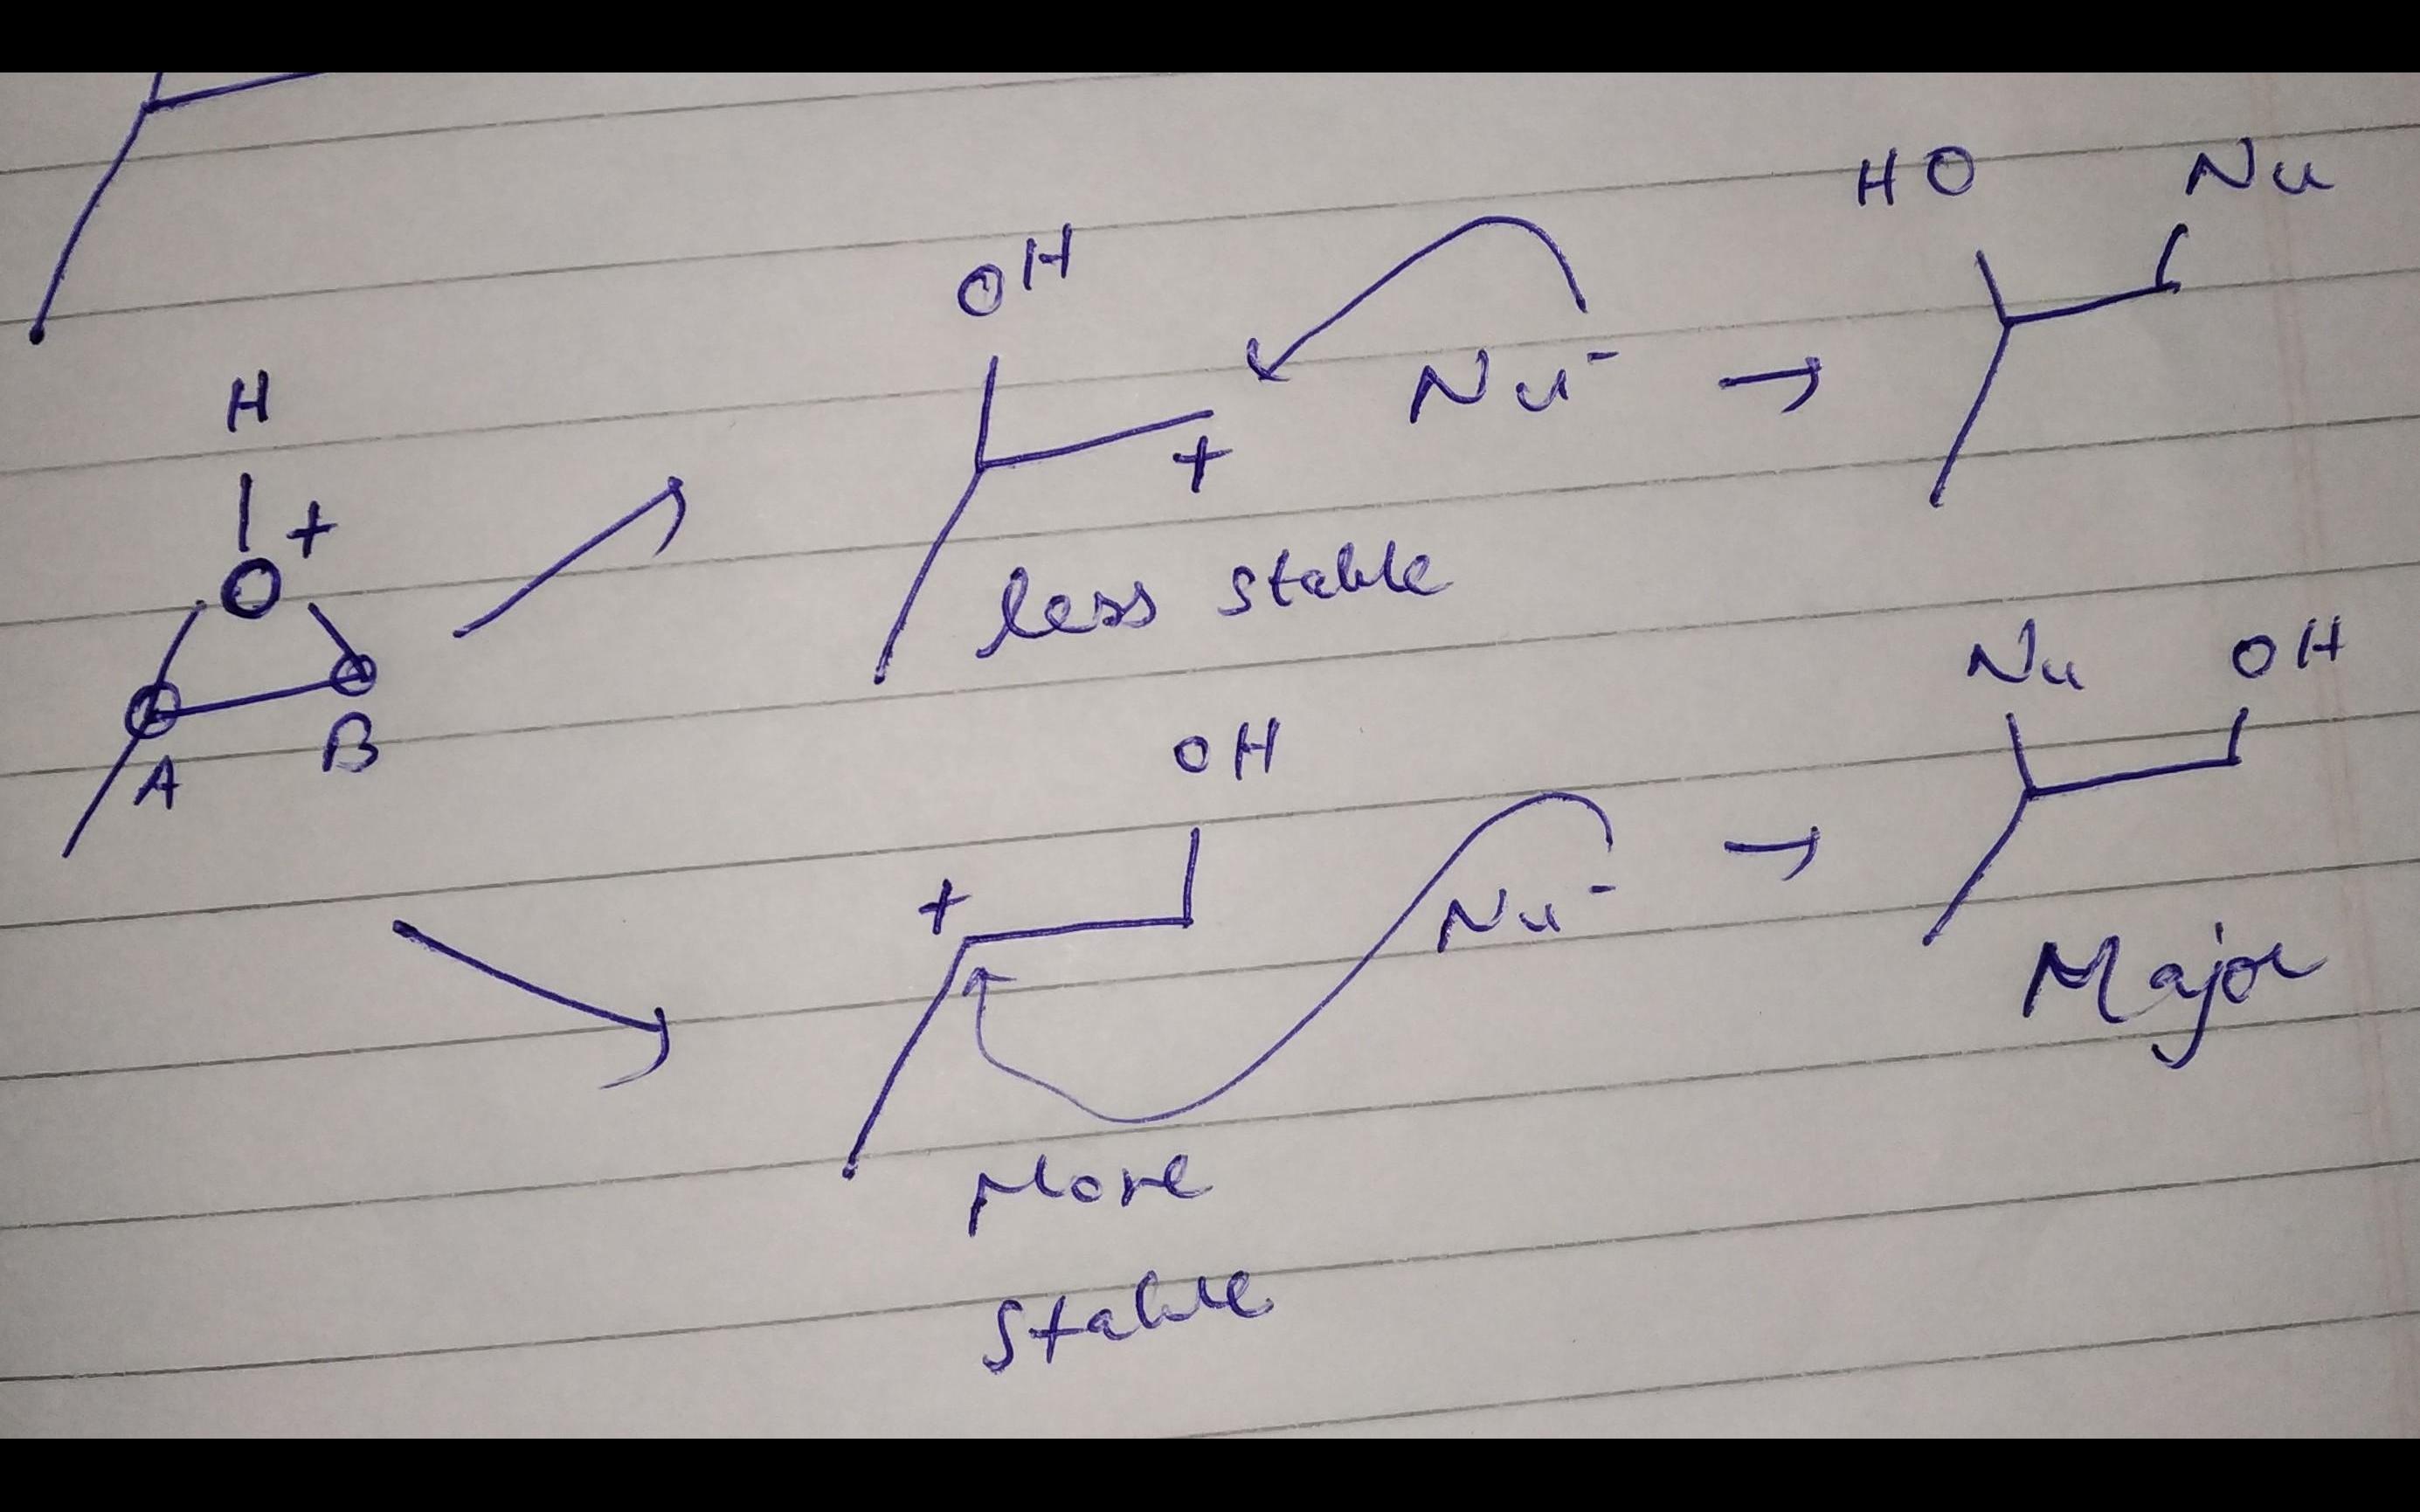 HO Nu
OH
Nu⁻ →
H
+
O
+
less stable
A B
Nu OH
OH
+
Nu⁻ →
Major
More
Stable